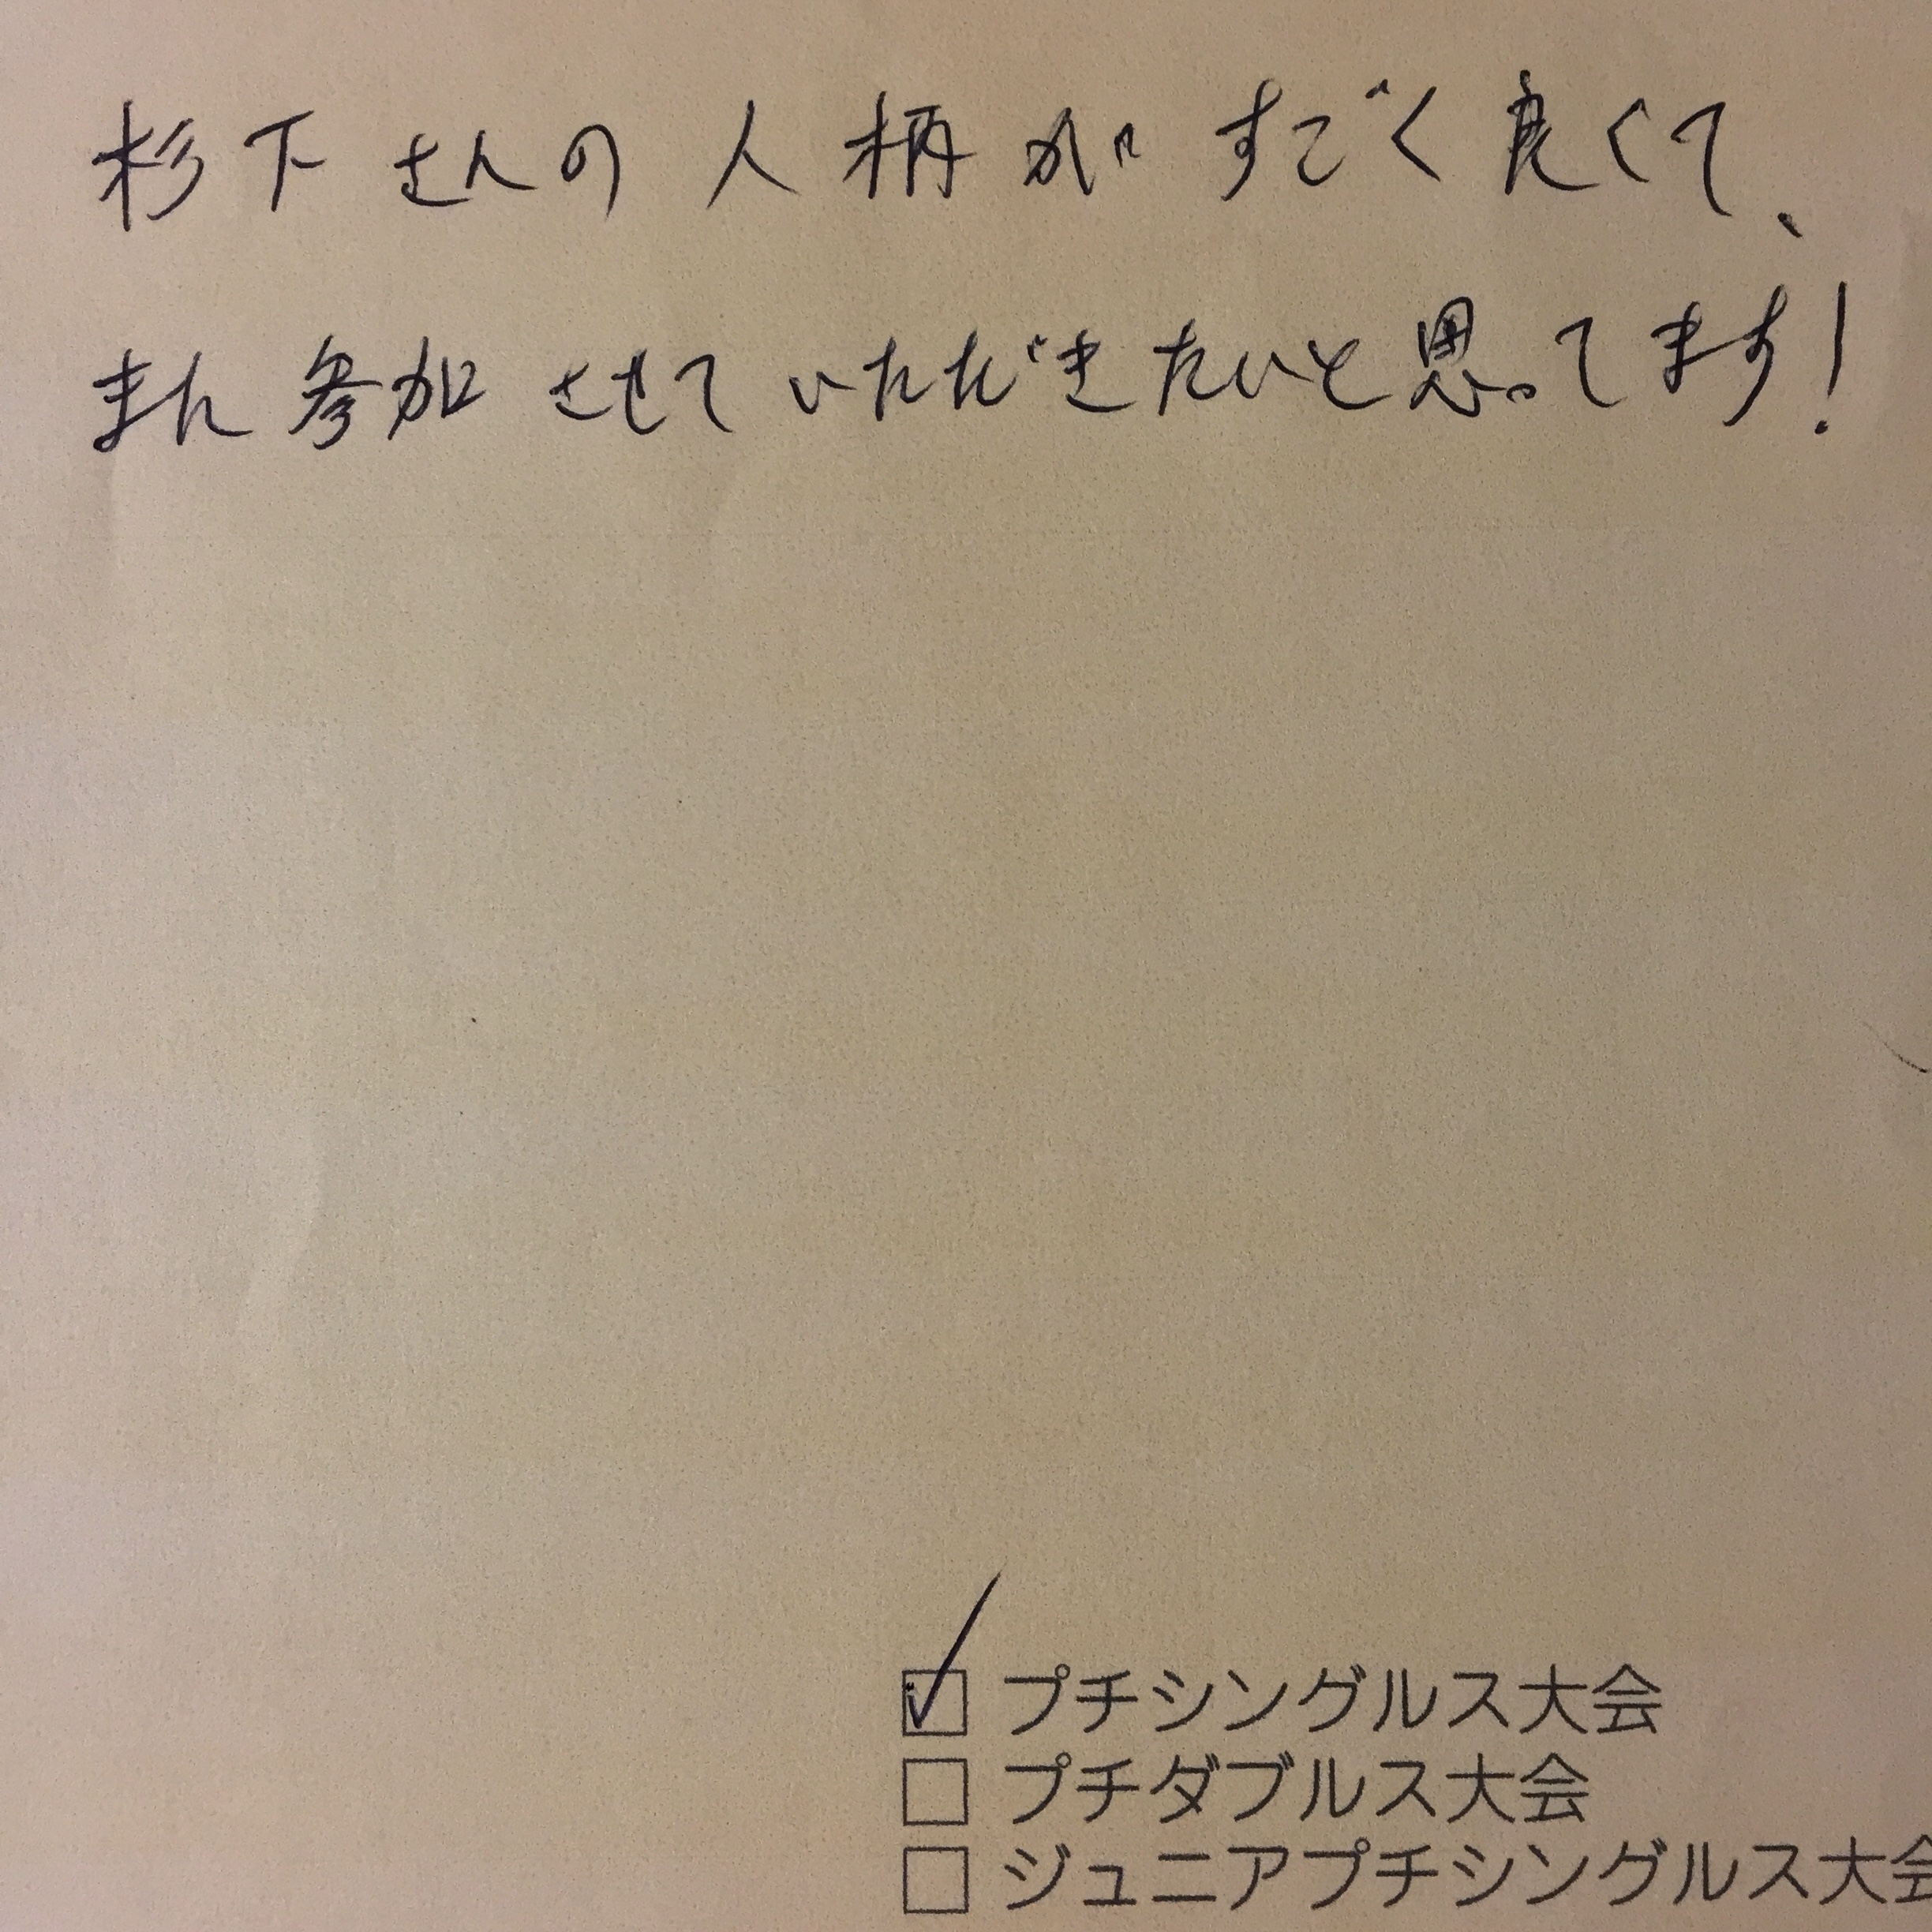 杉下さんの人柄がすごく良くて、
また参加させていただきたいと思ってます!
プチシングルス大会
プチダブルス大会
ジュニアプチシングルス大会